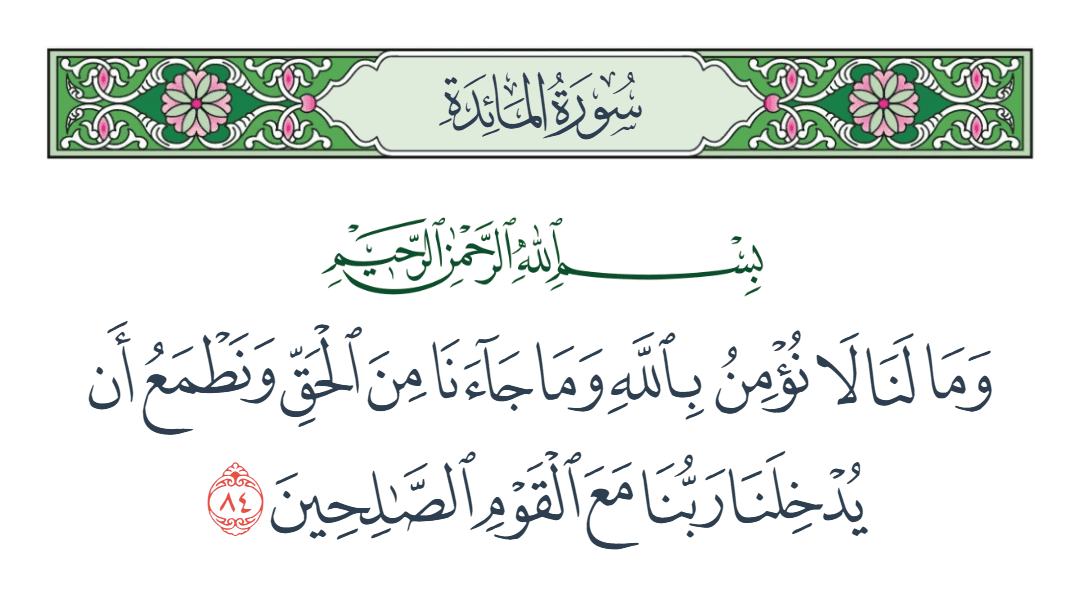 سُورَةُ المَائِدَة
بِسْمِ ٱللَّهِ ٱلرَّحْمَٰنِ ٱلرَّحِيمِ
وَمَا لَنَا لَا نُؤْمِنُ بِٱللَّهِ وَمَا جَآءَنَا مِنَ ٱلْحَقِّ وَنَطْمَعُ أَن
يُدْخِلَنَا رَبُّنَا مَعَ ٱلْقَوْمِ ٱلصَّٰلِحِينَ ٨٤